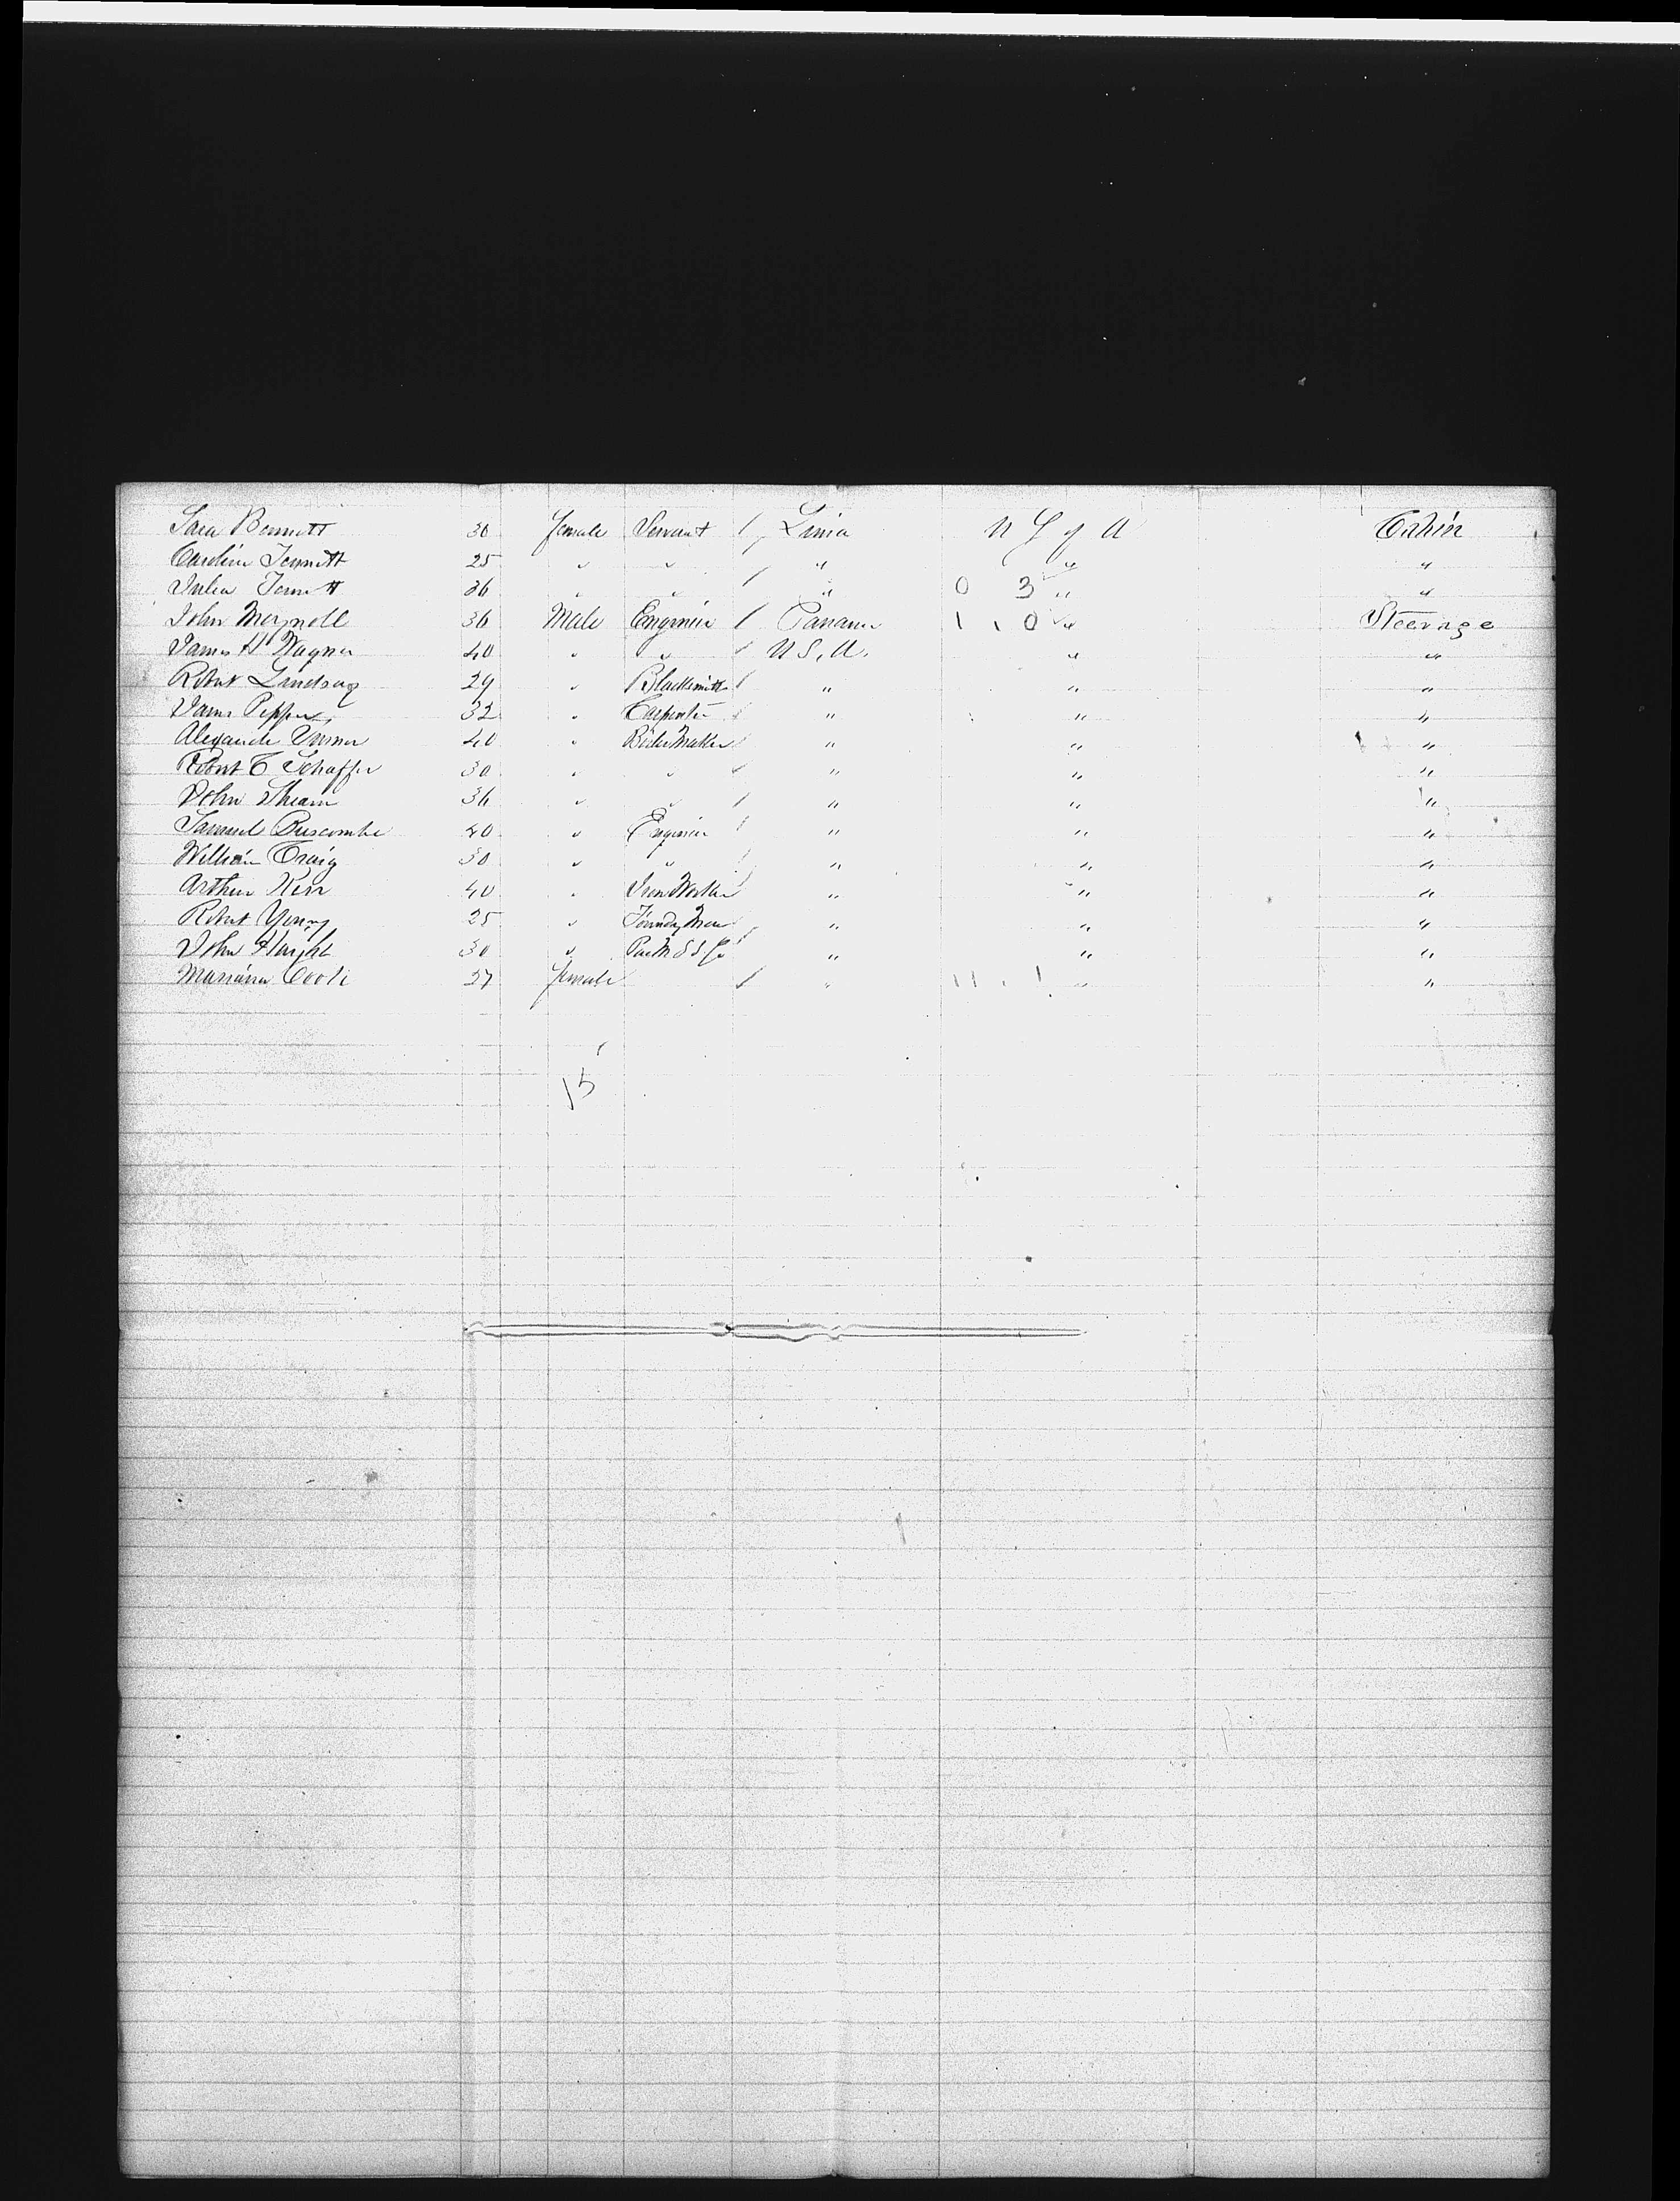 Sara Bennett 30 female Servant / Lima U S of A Cabin
Caroline Jennett 25 " " " " "
Julia Jennett 36 " " / " 0 3 " "
John Meynoll 36 Male Engineer / Panama 1 1 0 " Steerage
James H Wagner 40 " " / U S. A. " "
Robert Lindsay 29 " Blacksmith / " " "
James Pepper 32 " Carpenter / " " "
Alexander Turner 40 " Boiler Maker / " " "
Robert C Schaffer 30 " " / " " "
John Shearn 36 " " / " " "
Samuel Buscombe 40 " Engineer / " " "
William Craig 30 " " / " " "
Arthur Kerr 40 " Iron Worker / " " "
Robert Young 25 " Foundry Man / " " "
John Haight 30 " Pac M S S Co / " " "
Mariana Cook 27 female / " 11 . 1 " "
15